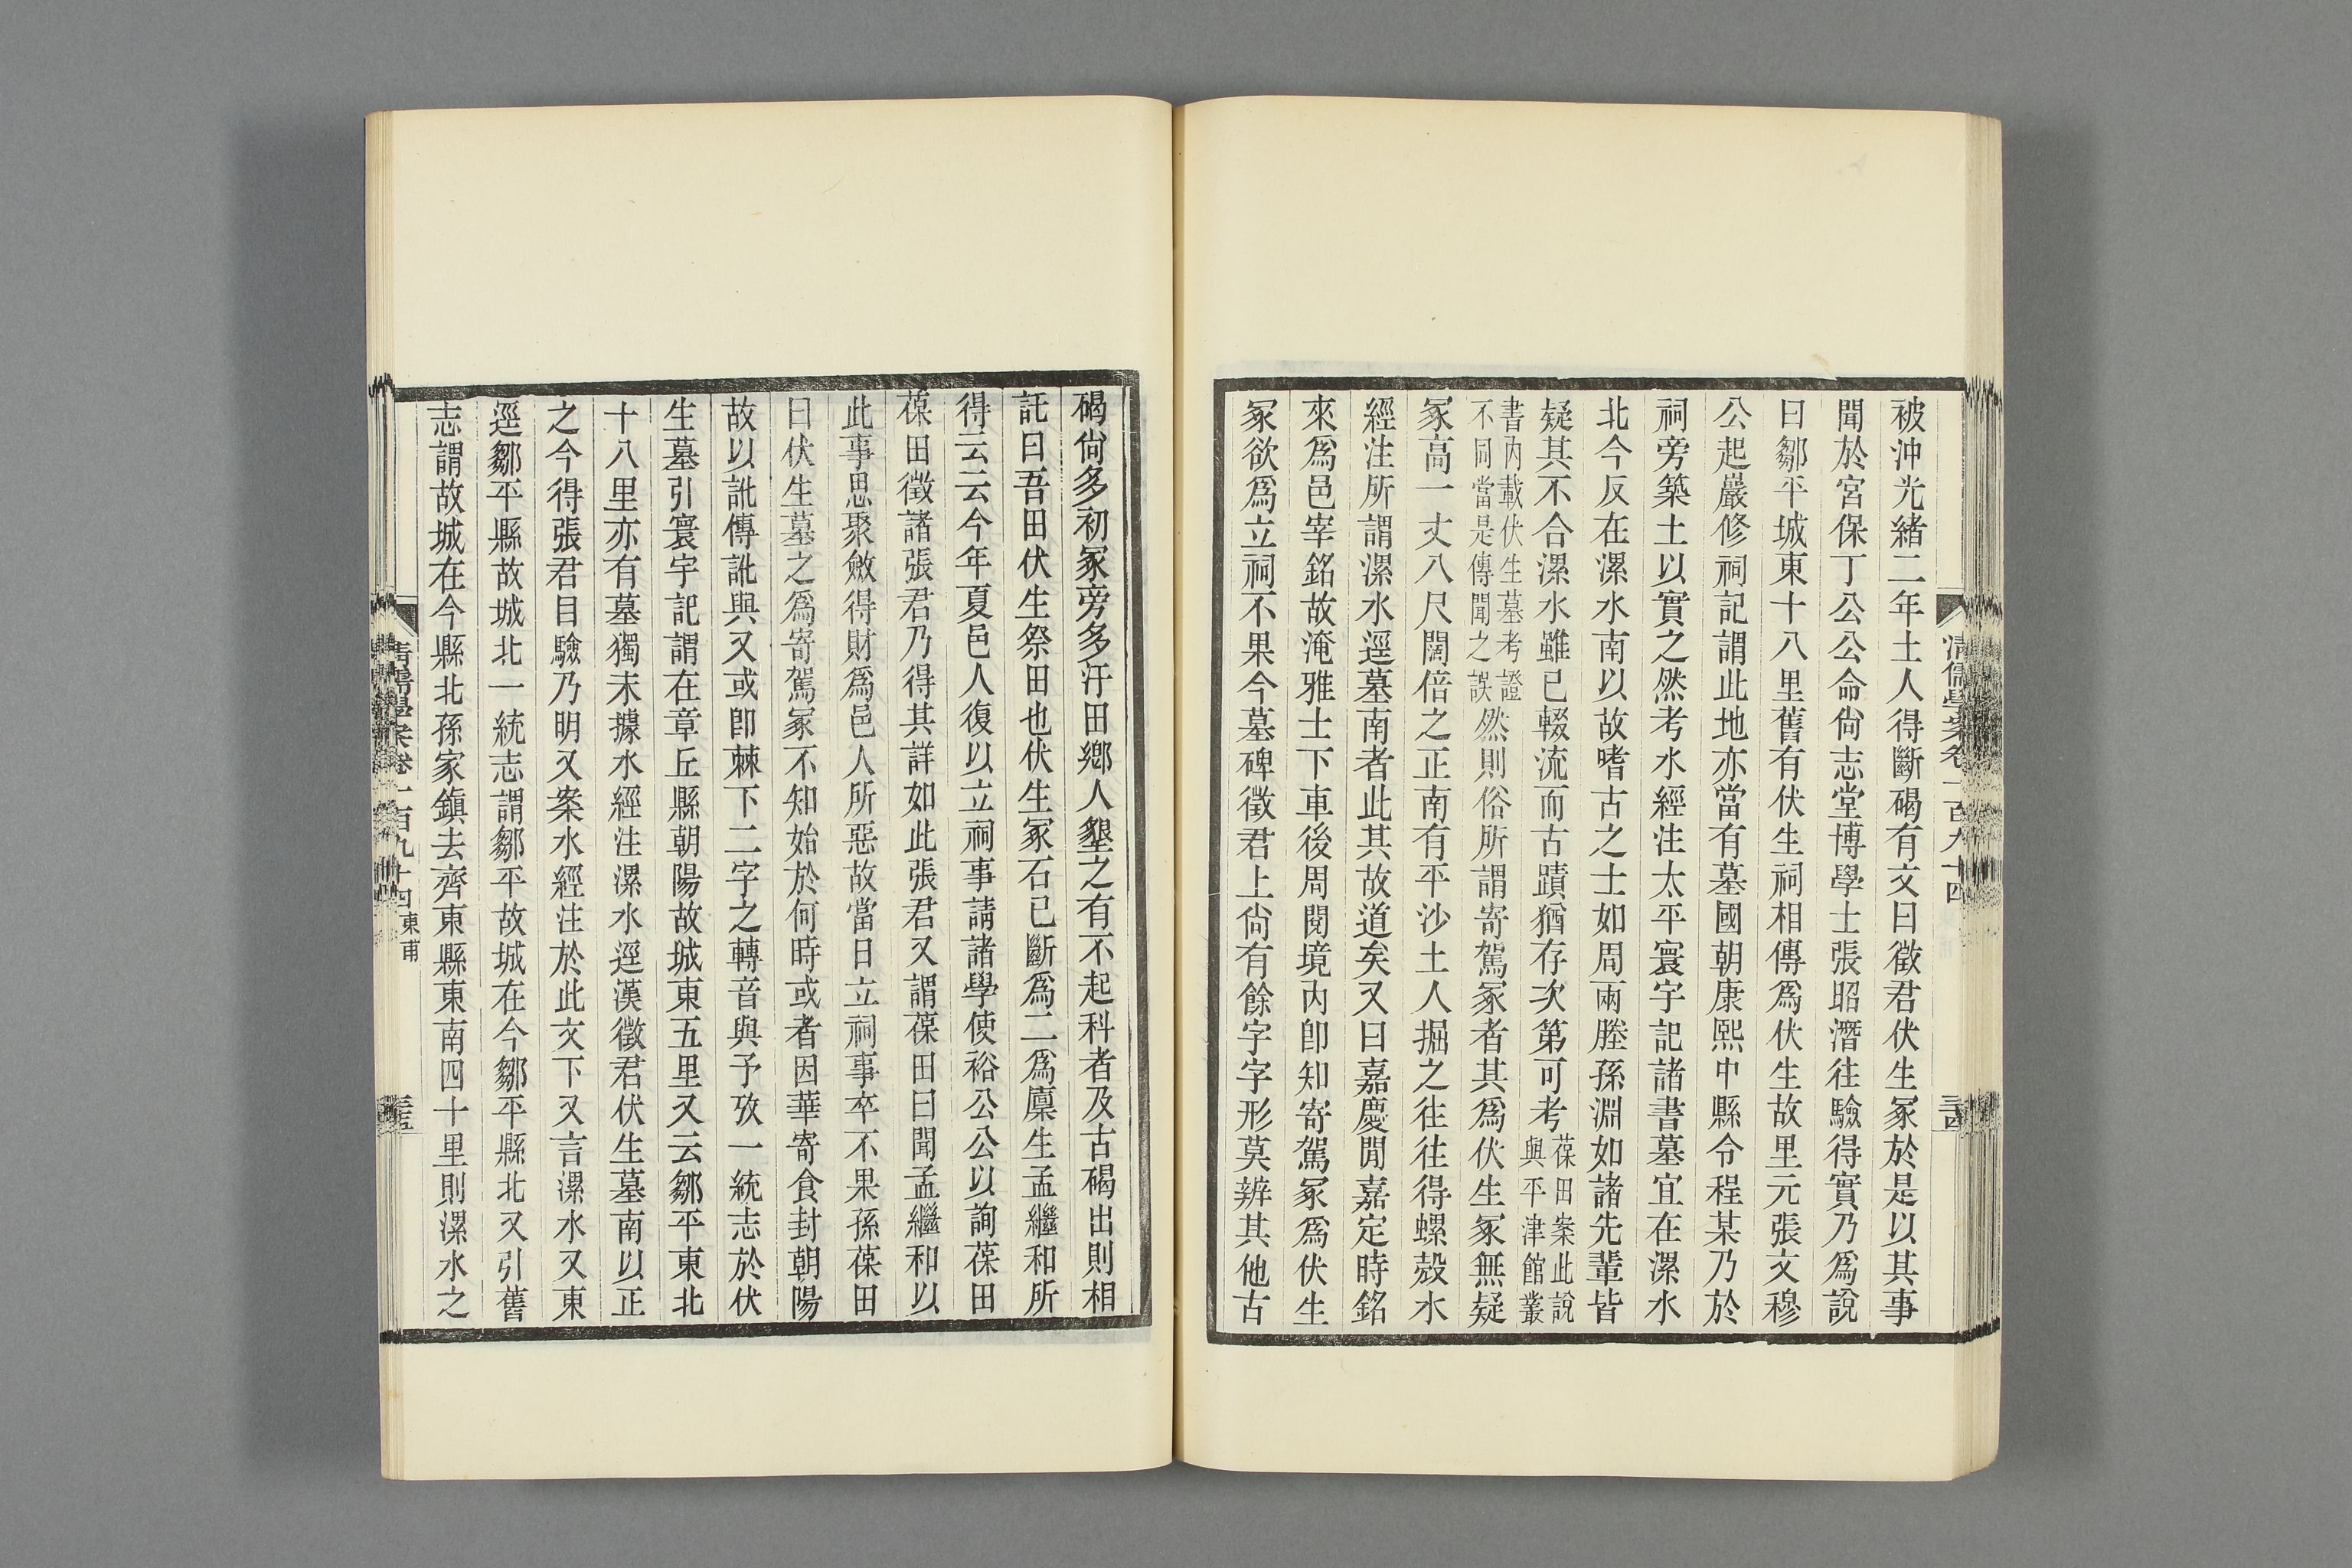 被沖光緒二年土人得斷碣有文曰徵君伏生冢於是以其事
聞於宮保丁公公命尙志堂博學士張昭潛往驗得實乃爲說
曰鄒平城東十八里舊有伏生祠相傳爲伏生故里元張文穆
公起巖修祠記謂此地亦當有墓國朝康熙中縣令程某乃於
祠旁築土以實之然考水經注太平寰宇記諸書墓宜在漯水
北今反在漯水南以故嗜古之士如周兩塍孫淵如諸先輩皆
疑其不合漯水雖已輟流而古蹟猶存次第可考葆田案此說與平津館叢
書內載伏生墓考證不同當是傳聞之誤然則俗所謂寄駕冢者其爲伏生冢無疑
冢高一丈八尺闊倍之正南有平沙土人掘之往往得螺殼水
經注所謂漯水逕墓南者此其故道矣又曰嘉慶閒嘉定時銘
來爲邑宰銘故淹雅士下車後周閱境內卽知寄駕冢爲伏生
冢欲爲立祠不果今墓碑徵君上尙有餘字字形莫辨其他古
清儒學案卷一百九十四
三十四
碣尙多初冢旁多汙田鄉人墾之有不起科者及古碣出則相
託曰吾田伏生祭田也伏生冢石已斷爲二爲廩生孟繼和所
得云云今年夏邑人復以立祠事請諸學使裕公公以詢葆田
葆田徵諸張君乃得其詳如此張君又謂葆田曰聞孟繼和以
此事思聚斂得財爲邑人所惡故當日立祠事卒不果孫葆田
曰伏生墓之爲寄駕冢不知始於何時或者因華寄食封朝陽
故以訛傳訛與又或卽棘下二字之轉音與予攷一統志於伏
生墓引寰宇記謂在章丘縣朝陽故城東五里又云鄒平東北
十八里亦有墓獨未據水經注漯水逕漢徵君伏生墓南以正
之今得張君目驗乃明又案水經注於此文下又言漯水又東
逕鄒平縣故城北一統志謂鄒平故城在今鄒平縣北又引舊
志謂故城在今縣北孫家鎮去齊東縣東南四十里則漯水之
清儒學案卷一百九十四 東甫
三十五